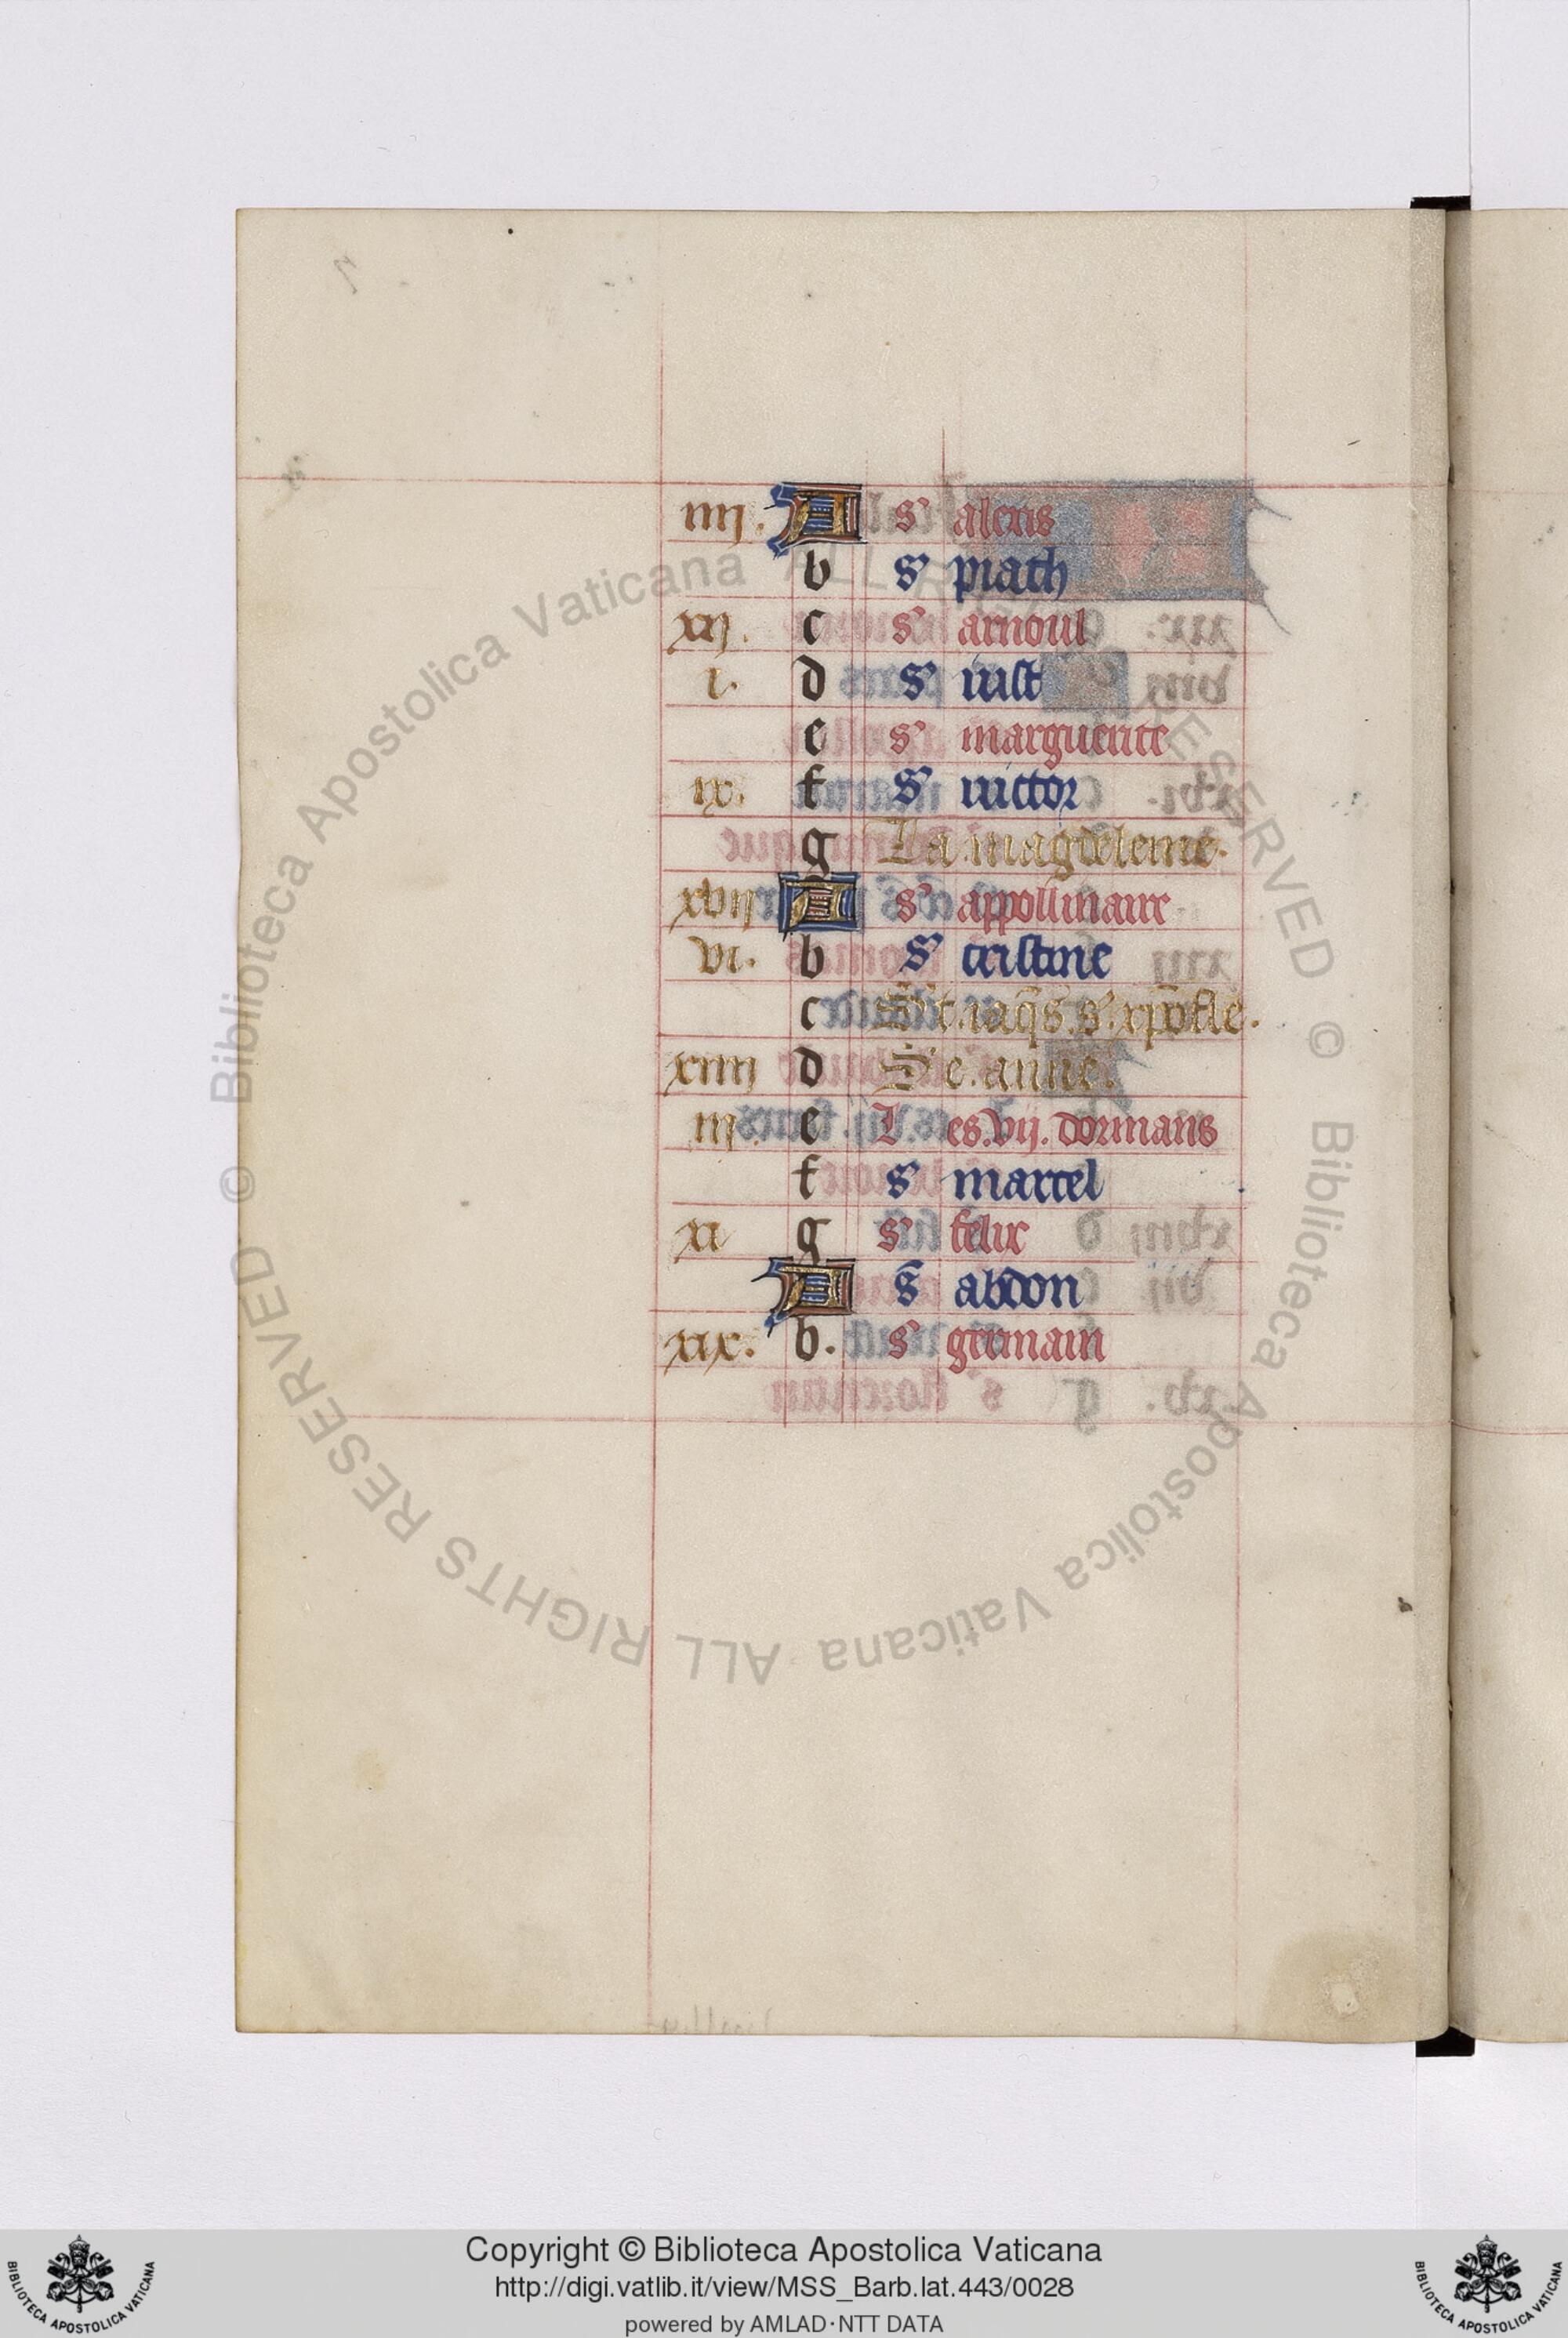 iiij. A s' alexis
b s' piath
xij. c s' arnoul
i. d s' iust
e s' marguerite
ix. f s' uictor
g La magdeleine.
xvij A s' appollinaire
vi. b s' cristine
c St. iaq̄s. s'. xp̄ofle.
xiiij d Se. anne.
iij e Les. vij. dormans
f s' marcel
xi g s' felix
A s̄ abdon
xix. b. s' germain
© Biblioteca Apostolica Vaticana ALL RIGHTS RESERVED © Biblioteca Apostolica Vaticana ALL RIGHTS RESERVED
Copyright © Biblioteca Apostolica Vaticana
http://digi.vatlib.it/view/MSS_Barb.lat.443/0028
powered by AMLAD·NTT DATA
BIBLIOTECA APOSTOLICA VATICANA
BIBLIOTECA APOSTOLICA VATICANA